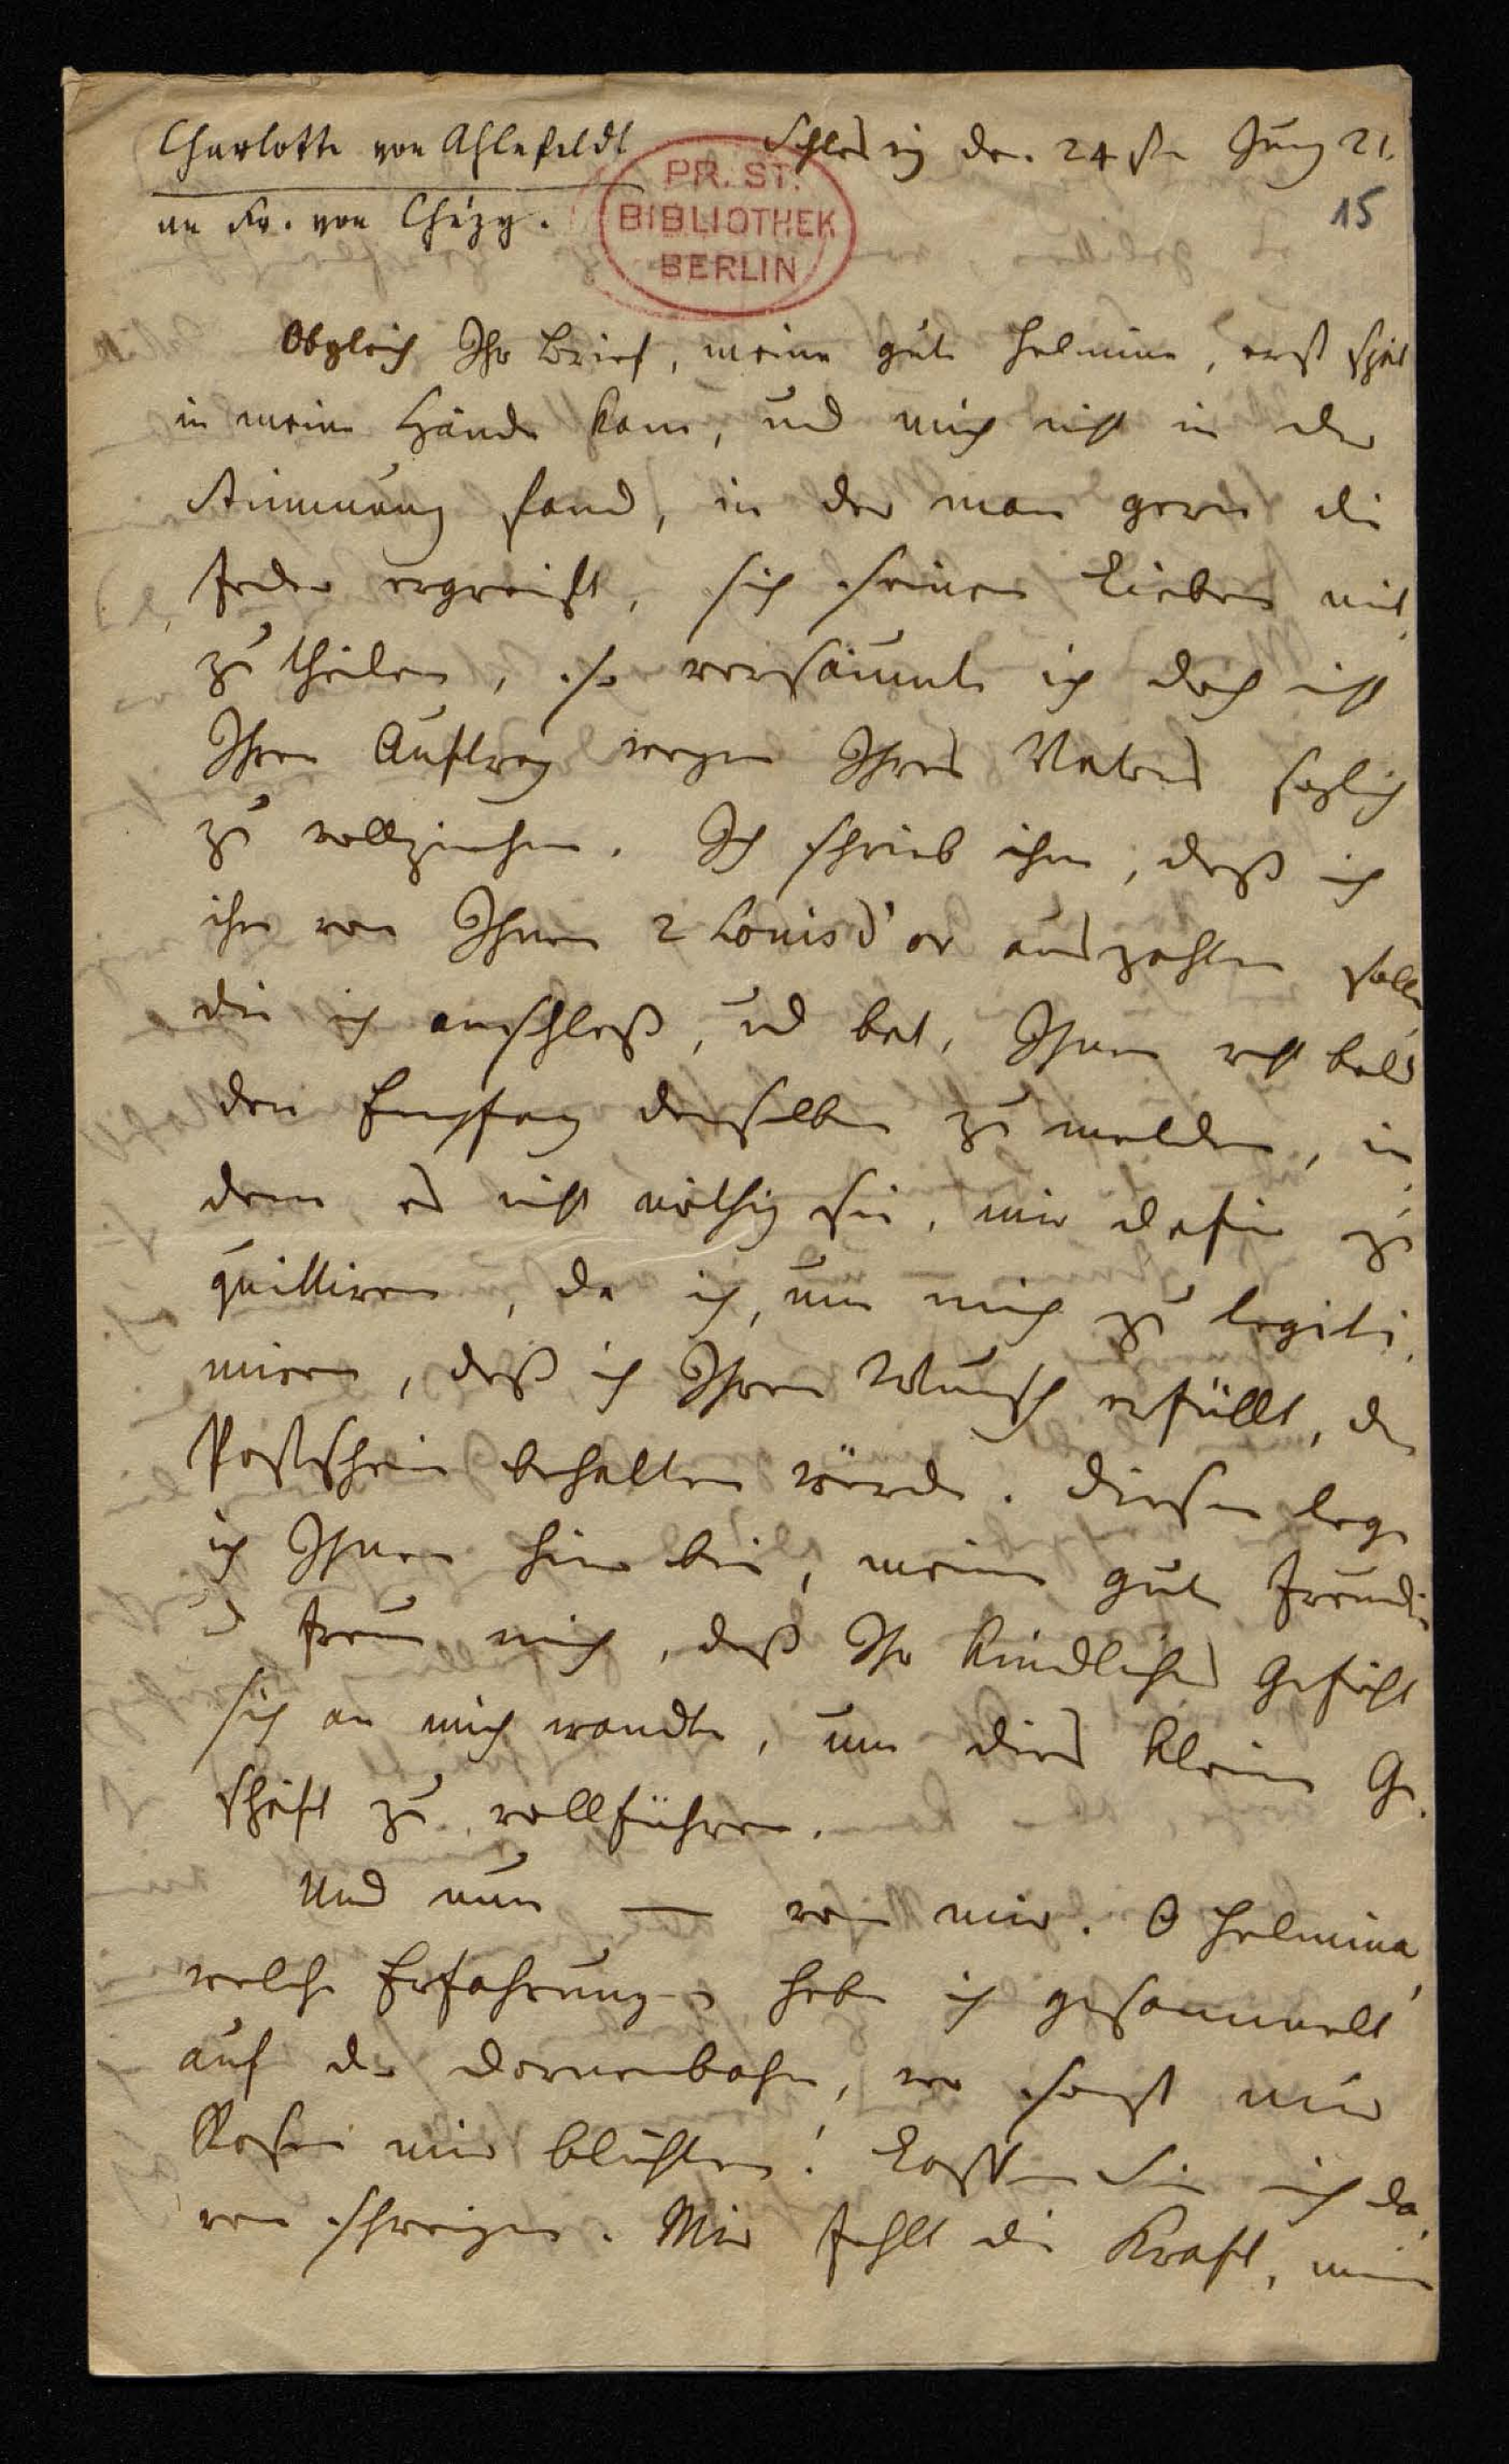 Charlotte von Ahlefeldt
an Fr. von Chézy.
Schleswig den 24ste Juny 21.
15
PR. ST.
BIBLIOTHEK
BERLIN
Obgleich Ihr Brief, meine gute Helmine, erst spät
in meine Hände kam, und mich nicht in der
Stimmung fand, in der man gern die
Feder ergreift, sich seinen Lieben mit
zu theilen, so versäumte ich doch nicht
Ihren Auftrag wegen Ihres Vaters sogleich
zu vollziehen. Ich schrieb ihm, daß ich
ihm von Ihnen 2 Louisd'or auszahlen solle,
die ich anschloß, und bat, Ihnen recht bald
den Empfang derselben zu melden, in
dem es nicht nöthig sei, mir dafür zu
quittiren, da ich, um mich zu legiti
miren, daß ich Ihren Wunsch erfüllt, den
Postschein behalten würde. Diesen lege
ich Ihnen hier bei, meine gute Freundin
und freue mich, daß Ihr kindliches Gefühl
sich an mich wandte, um dies kleine Ge
schäft zu vollführen.
Und nun — von mir. O Helmina,
welche Erfahrungen habe ich gesammelt
auf der Dornenbahn, wo sonst nur
Rosen mir blühten! Lassen Sie mich da
von schweigen. Mir fehlt die Kraft, meine